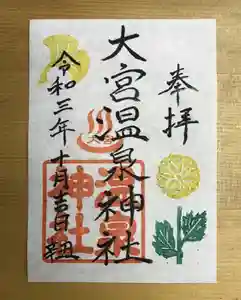 奉拝
大宮温泉神社
令和三年十月吉日